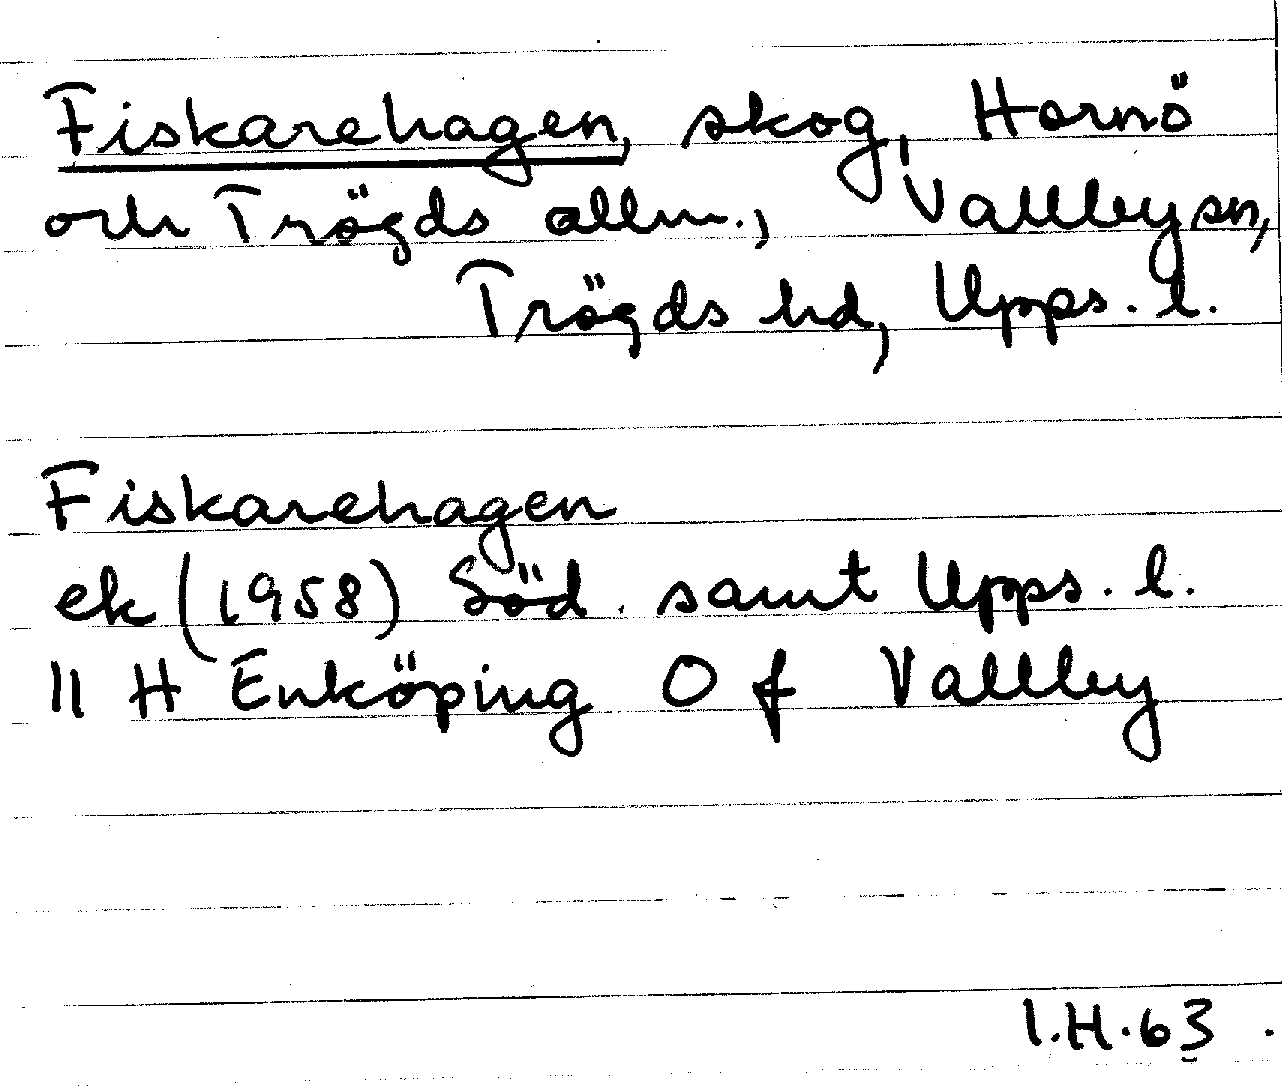 Fiskarehagen, skog, Hornö
och Trögds allm., Vallby sn,
Trögds hd, Upps. l.
Fiskarehagen
ek (1958) Söd. samt Upps. l.
11 H Enköping O f Vallby
I.H.63.